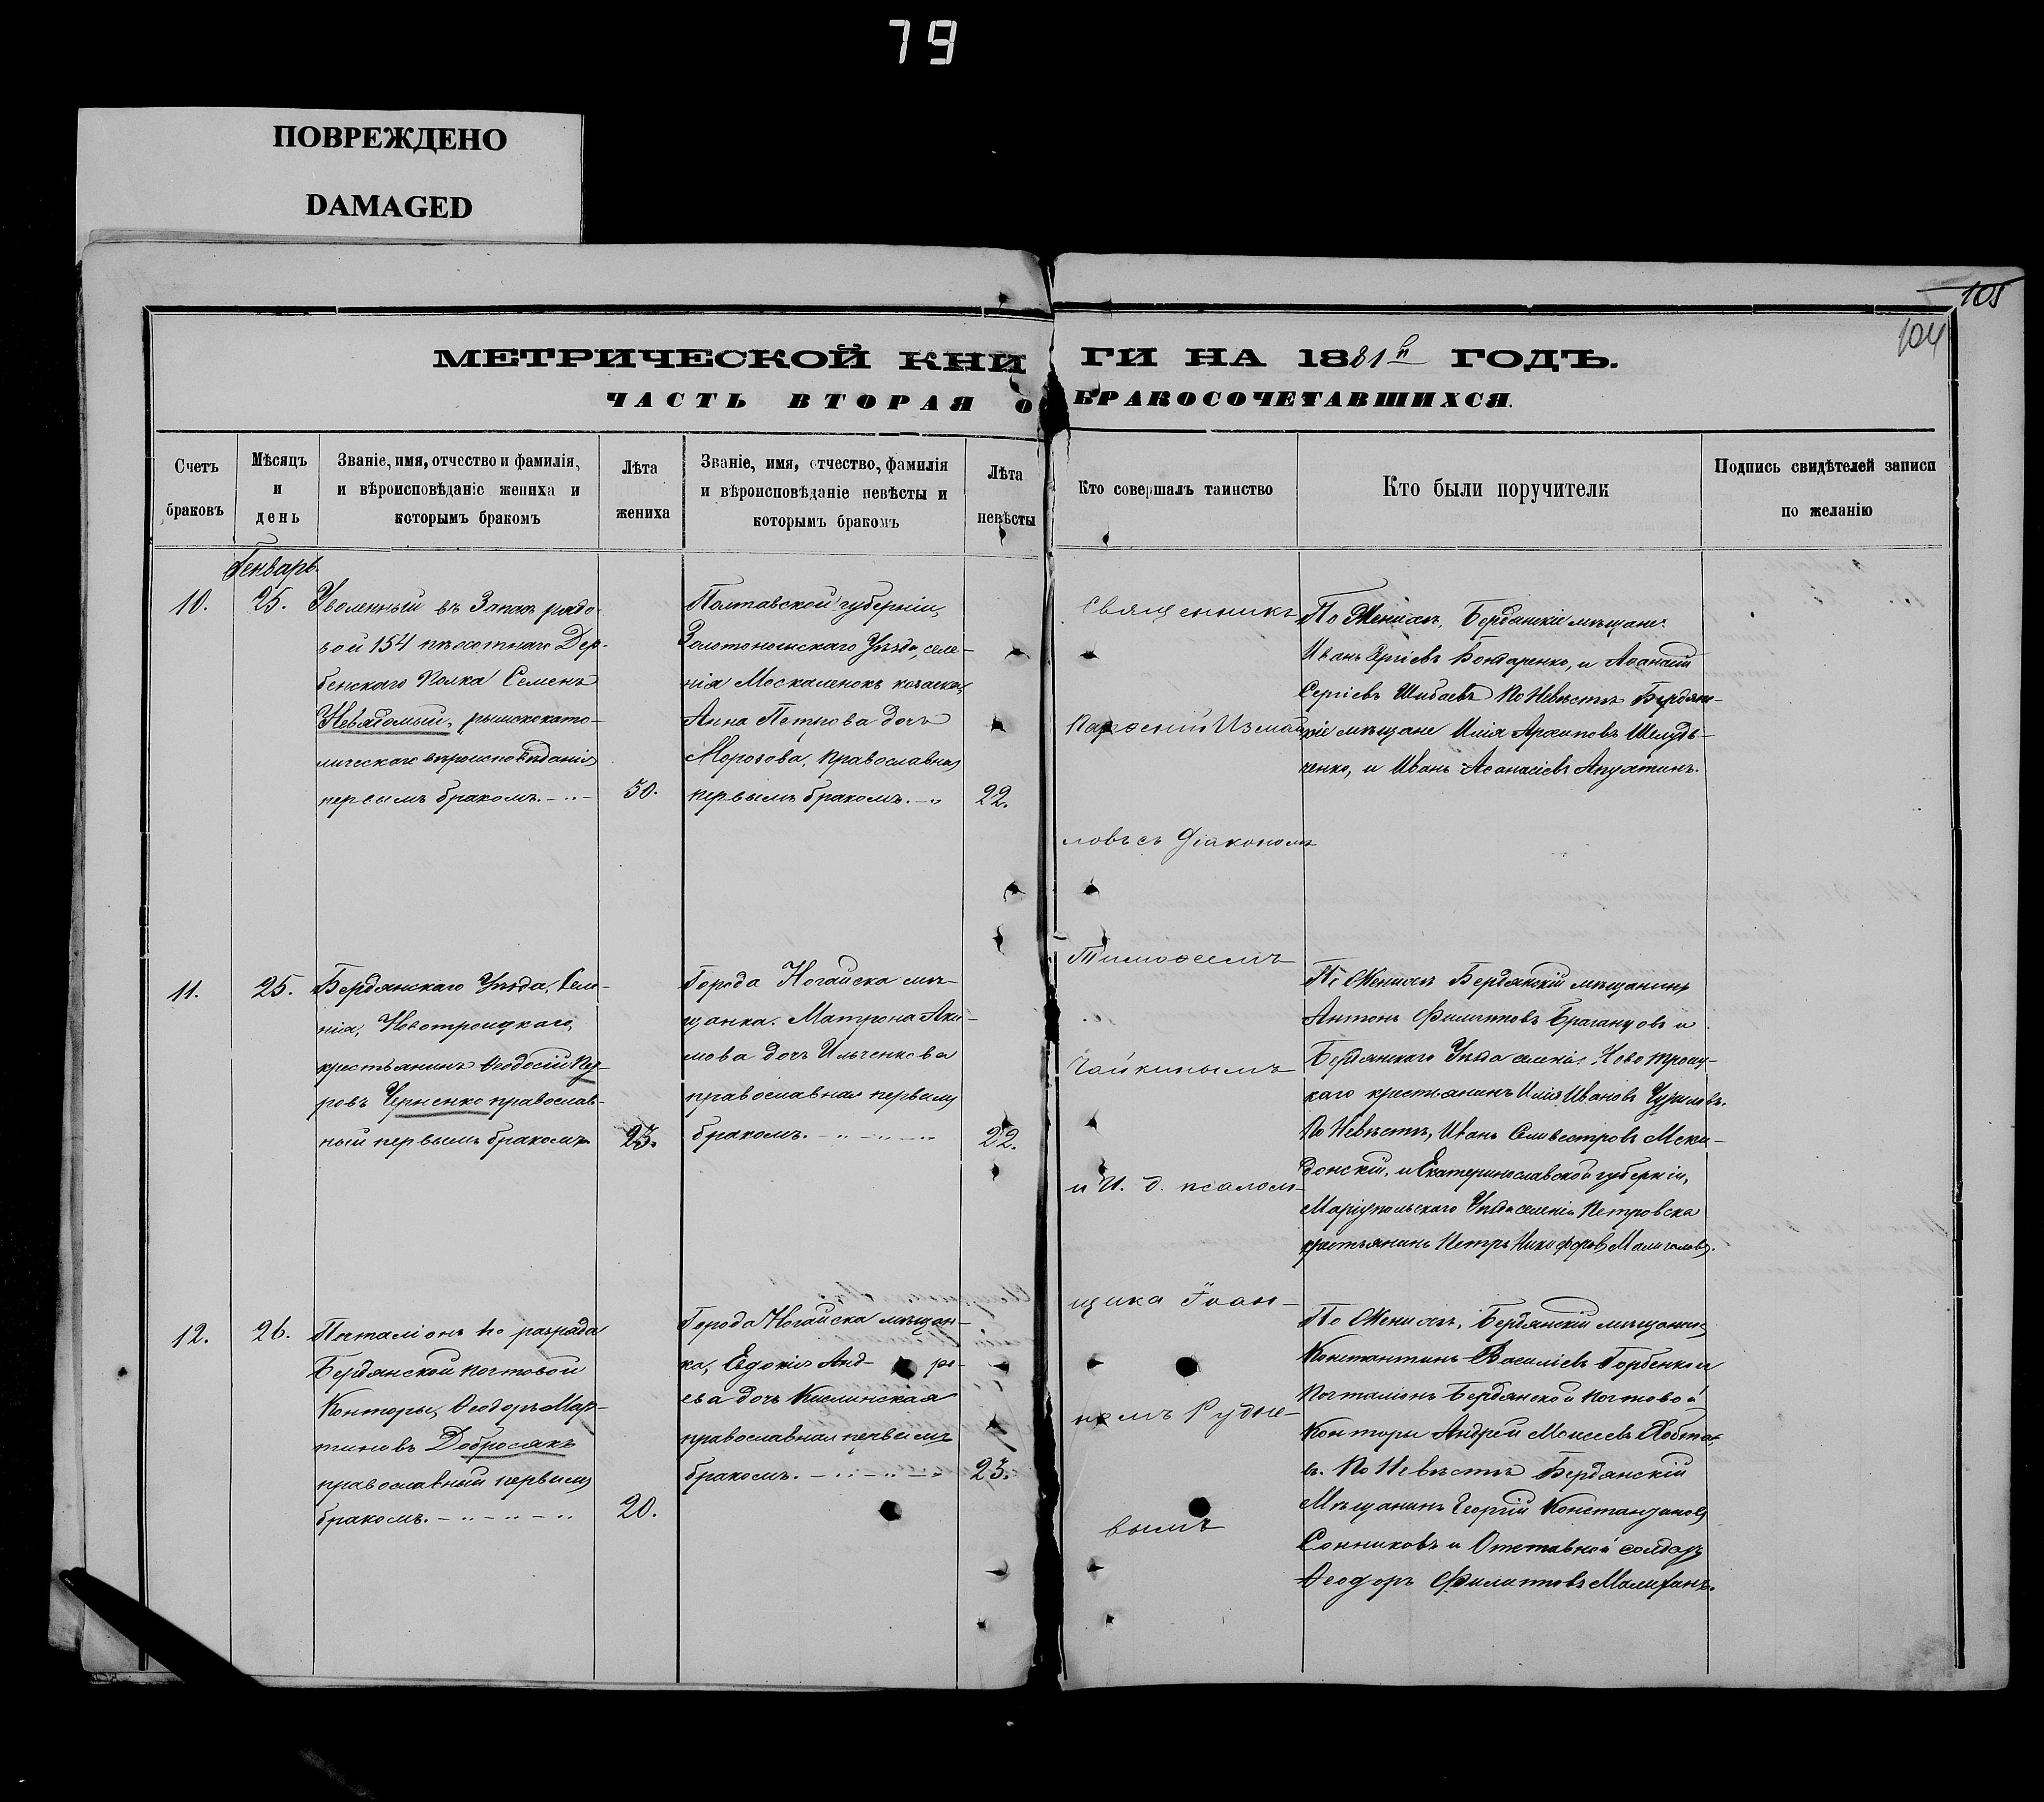 79
ПОВРЕЖДЕНО
DAMAGED
105
104
МЕТРИЧЕСКОЙ КНИГИ НА 1881й ГОДЪ.
ЧАСТЬ ВТОРАЯ О БРАКОСОЧЕТАВШИХСЯ.
Счетъ
браковъ
Мѣсяцъ
и
день
Званіе, имя, отчество и фамилія,
и вѣроисповѣданіе жениха и
которымъ бракомъ
Лѣта
жениха
Званіе, имя, отчество, фамилія
и вѣроисповѣданіе невѣсты и
которымъ бракомъ
Лѣта
невѣсты
Кто совершалъ таинство
Кто были поручители
Подпись свидѣтелей записи
по желанію
Генварь.
10.
25.
Уволенный въ Запасъ рядо-
вой 154 пѣхотнаго Дер-
бенскаго Полка Семенъ
Невядомый, рымскокато-
лическаго вѣроисповѣданія
первымъ бракомъ.
30.
Полтавской губерніи,
Золотоношскаго Уѣзда, селе-
нія Москаленокъ козачка,
Анна Петрова дочь
Морозова, Православная
первымъ бракомъ.
22.
Священникъ
Парѳеній Измаи-
ловъ съ Діакономъ
Тимоѳеемъ
Чайкинымъ
и И. д. псалом-
щика Іоан-
номъ Рудне-
вымъ
По Женихѣ, Бердянскіе мѣщане:
Иванъ Бондаренко, и Аѳанасій
Сергіевъ Шибаевъ По Невѣстѣ Бердянс-
кіе мѣщане Илія Архиповъ Шелуд-
ченко, и Иванъ Аѳанасіевъ Апухтинъ.
11.
25.
Бердянскаго Уѣзда, Селе-
нія, Новотроицкаго,
крестьянинъ Ѳеодосій
ровъ Черненко православ-
ный первымъ бракомъ
23.
Города Ногайска мѣ-
щанка. Матрона Аки-
мова дочь Ильченкова
православная первымъ
бракомъ.
22.
По Женихѣ Бердянскій мѣщанинъ
Антонъ Филиповъ Браганцовъ и
Бердянскаго Уѣзда селенія, Новотроиц-
каго крестьянинъ Илія Ивановъ
По Невѣстѣ, Иванъ Селивестровъ Маке-
донскій, и Екатеринославской губерніи,
Маріупольскаго Уѣзда селенія Петровска
крестьянинъ Петръ Никифоровъ
12.
26.
Почталіонъ 1го разряда
Бердянской почтовой
Конторы, Ѳеодоръ Мар-
тиновъ Добросякъ
православный первымъ
бракомъ.
20.
Города Ногайска мѣщан-
ка, Евдокія Анд- ре-
ева дочь Кислинская
православная первымъ
бракомъ.
23.
По Женихѣ, Бердянскій мѣщанинъ
Константинъ Василіевъ Горбенко и
почталіонъ Бердянской почтовой
Конторы Андрей Моисеевъ
въ. По Невѣстѣ Бердянскій
Мѣщанинъ Георгій Константиновъ
Сонниковъ и Отставной солдатъ
Ѳеодоръ Филиповъ